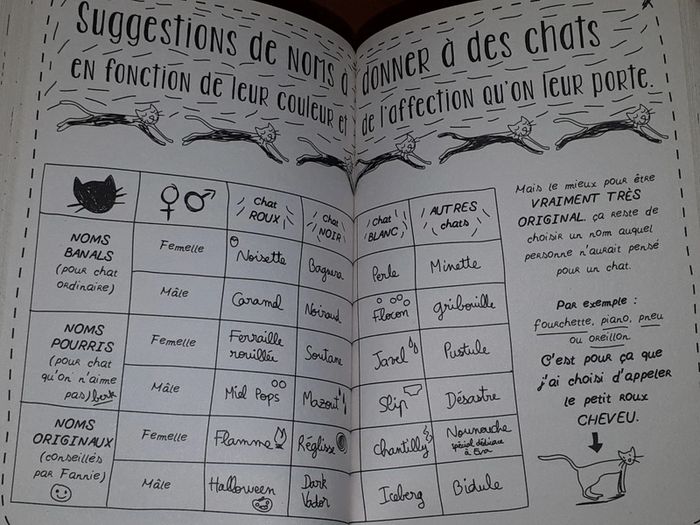 Suggestions de noms à donner à des chats
en fonction de leur couleur et de l'affection qu'on leur porte.
chat ROUX
chat NOIR
chat BLANC
AUTRES chats
NOMS BANALS (pour chat ordinaire)
Femelle
Noisette
Bagura
Perle
Minette
Mâle
Caramel
Noiraud
Flocon
gribouille
NOMS POURRIS (pour chat qu'on n'aime pas) berk
Femelle
Ferraille rouillée
Soutane
Javel
Pustule
Mâle
Miel Pops
Mazout
Slip
Désastre
NOMS ORIGINAUX (conseillés par Fannie)
Femelle
Flamme
Réglisse
Chantilly
Nounouche
spécial dédicace à Eva
Mâle
Halloween
Dark Vador
Iceberg
Bidule
Mais le mieux pour être
VRAIMENT TRÈS
ORIGINAL, ça reste de
choisir un nom auquel
personne n'aurait pensé
pour un chat.
Par exemple :
fourchette, piano, pneu
ou oreillon
C'est pour ça que
j'ai choisi d'appeler
le petit roux
CHEVEU.